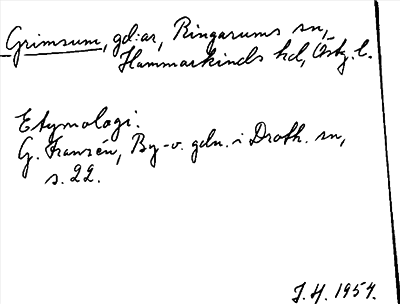 Grimsum, gd:ar, Ringarums sn,
Hammarkinds hd, Östg. l.
Etymologi.
G. Franzén, By-o. gdn. i Droth. sn,
s. 22.
J. H. 1954.